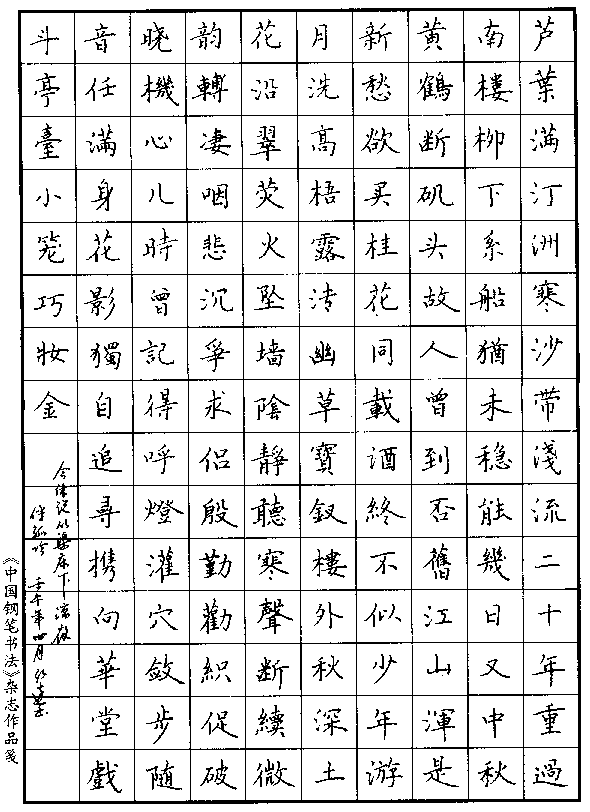 芦葉满汀洲寒沙带淺流二十年重過
南樓柳下系船猶未稳能幾日又中秋
黄鶴断矶头故人曾到否舊江山渾是
新愁欲买桂花同載酒終不似少年游
月洗高梧露漙幽草寶釵樓外秋深土
花沿翠荧火坠墙陰靜聽寒聲断續微
韵轉凄咽悲沉爭求侣殷勤勸織促破
晓機心儿時曾記得呼燈灌穴斂步随
音任满身花影獨自追尋携向華堂戲
斗亭臺小笼巧妝金
今休说从渠床下凉夜
伴孤吟 壬午年四月
《中国钢笔书法》杂志作品笺